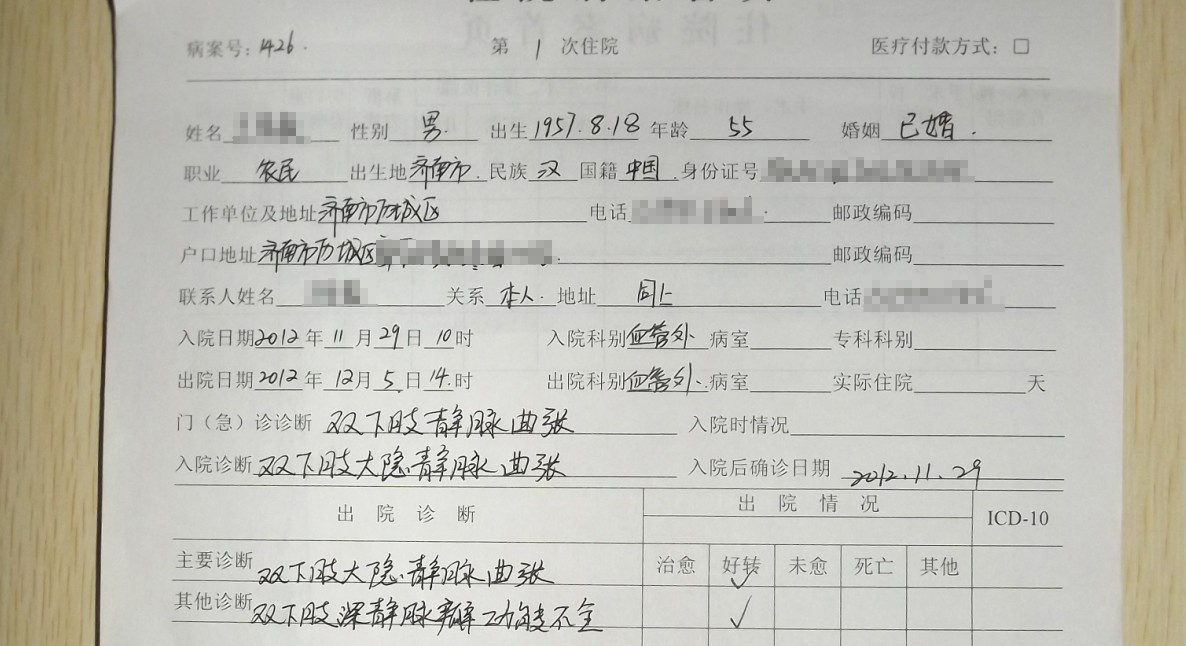 病案号: 1426. 第 1 次住院 医疗付款方式: □
姓名 性别 男. 出生 1957.8.18 年龄 55 婚姻 已婚.
职业 农民 出生地 济南市. 民族 汉 国籍 中国. 身份证号
工作单位及地址 济南市历城区 电话 邮政编码
户口地址 济南市历城区 邮政编码
联系人姓名 关系 本人. 地址 同上 电话
入院日期 2012 年 11 月 29 日 10 时 入院科别 血管外 病室 专科科别
出院日期 2012 年 12 月 5 日 14 时 出院科别 血管外. 病室 实际住院 天
门（急）诊诊断 双下肢静脉曲张 入院时情况
入院诊断 双下肢大隐静脉曲张 入院后确诊日期 2012.11.29
出院诊断 出院情况 ICD-10
治愈 好转 未愈 死亡 其他
主要诊断 双下肢大隐静脉曲张 ✓
其他诊断 双下肢深静脉瓣功能不全 ✓